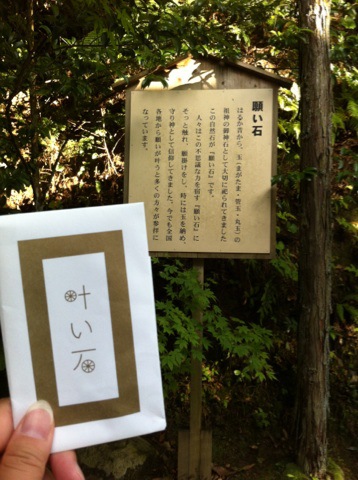 願い石
はるか昔から、玉（まがたま・管玉・丸玉）の
祖神の御神石として大切に祀られてきました
この自然石が『願い石』です。
人々はこの不思議な力を宿す『願い石』に
そっと触れ、願掛けをし、時には玉を納め、
守り神として信仰してきました。今でも全国
各地から願いが叶うと多くの方々が参拝に
なっています。
叶い石